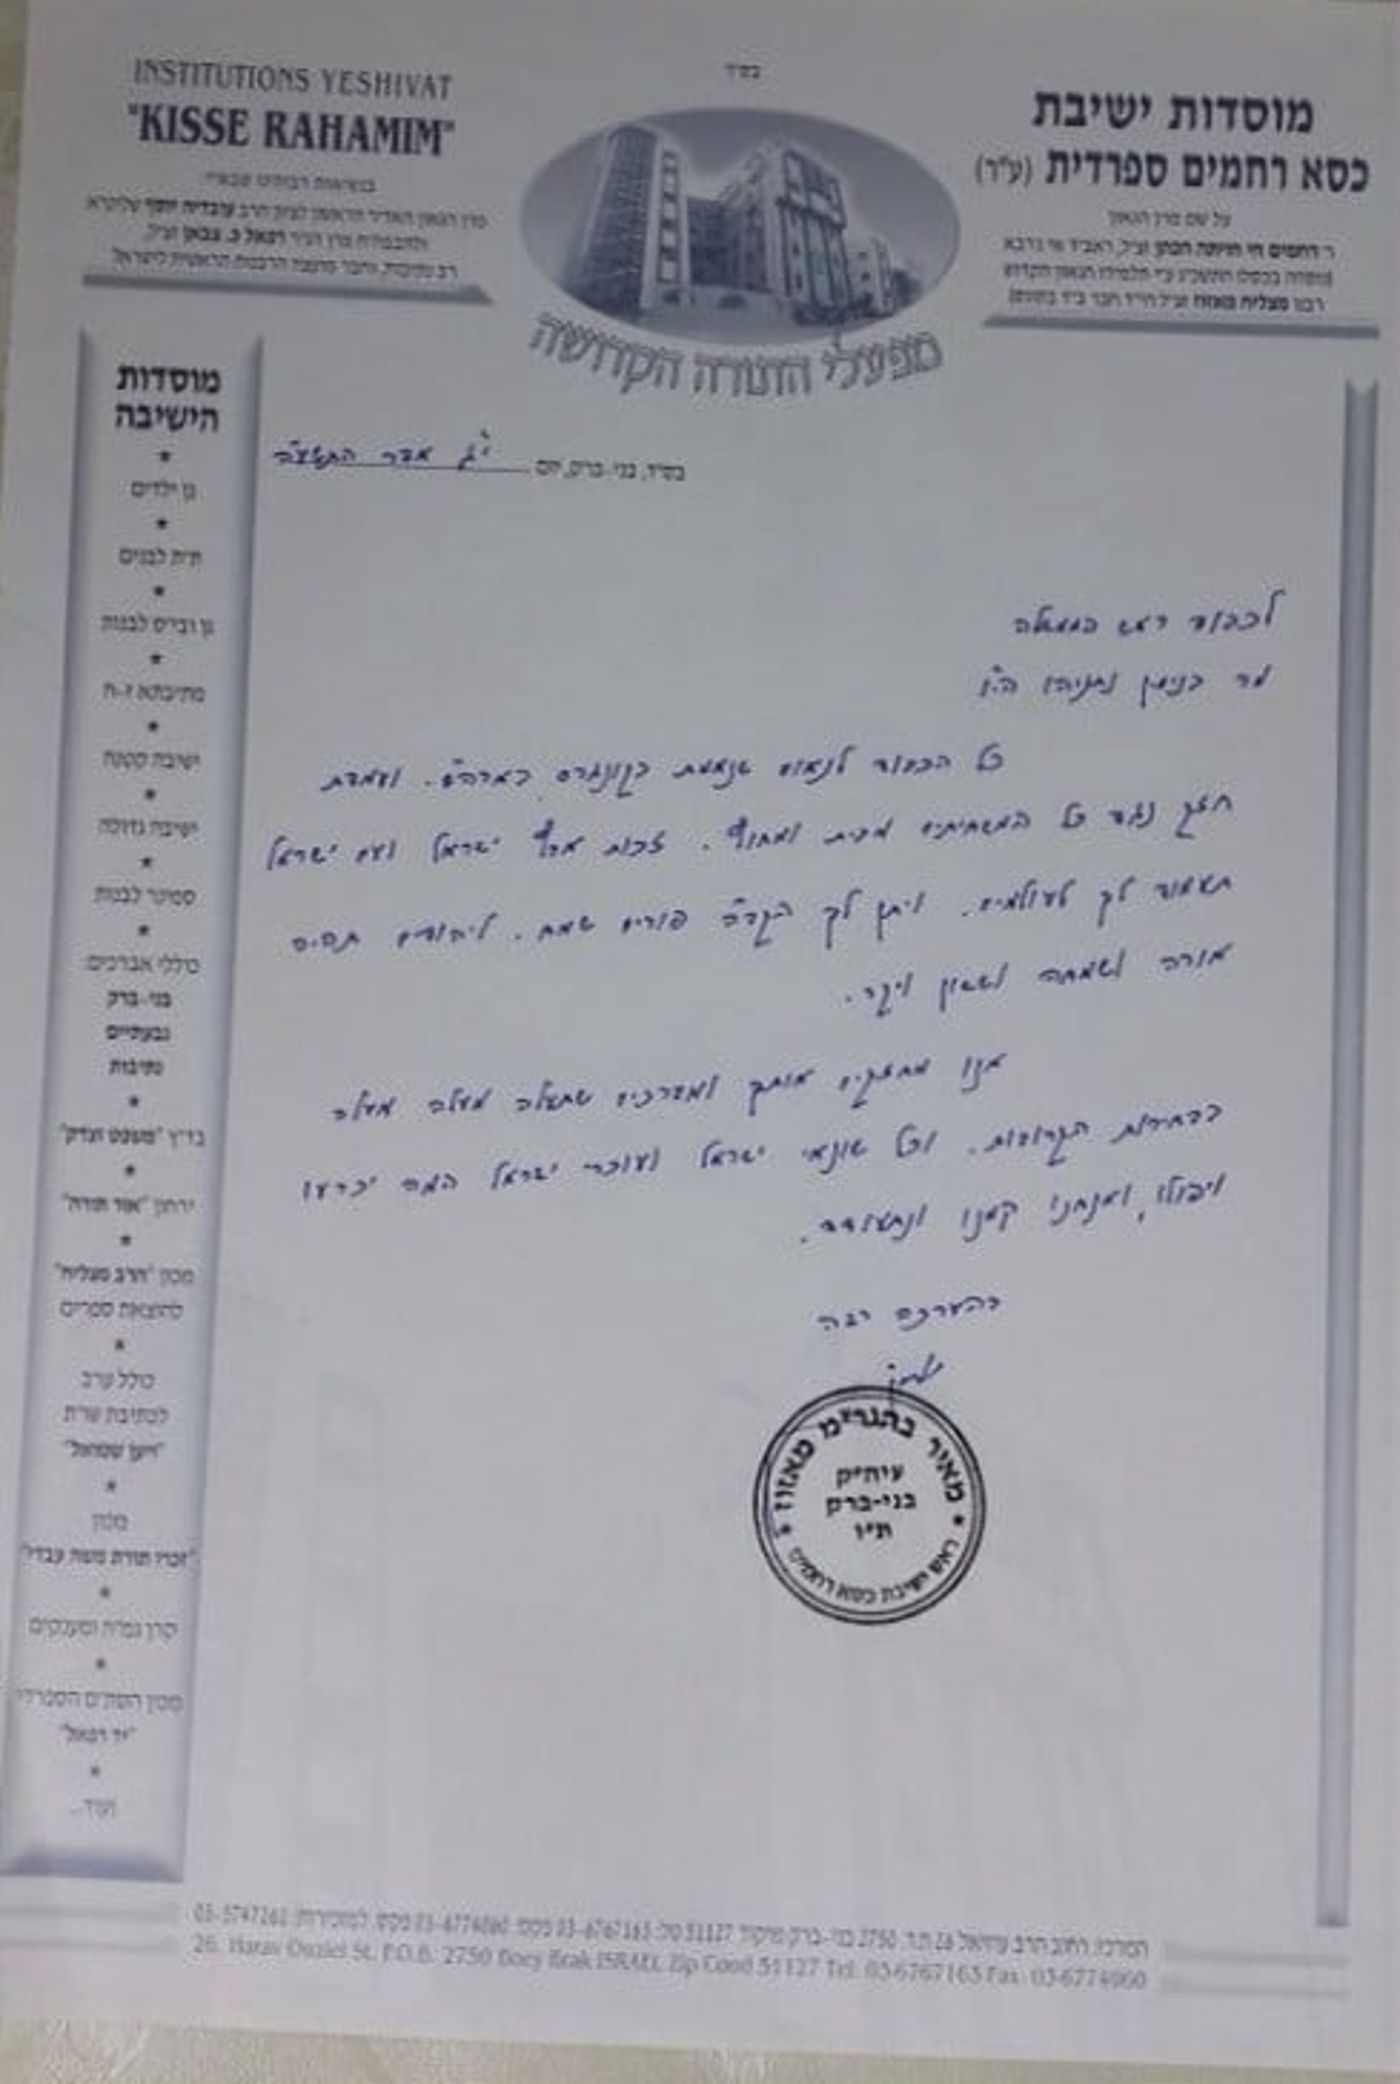 בס"ד
INSTITUTIONS YESHIVAT
"KISSE RAHAMIM"
מוסדות ישיבת
כסא רחמים ספרדית (ע"ר)
על שם מרן הגאון
ר' רחמים חי חויתה הכהן זצ"ל, ראב"ד אי גרבא
נוסדה בכסלו התשכ"ג ע"י תלמידו הגאון הקדוש
רבנו מצליח מאזוז זצ"ל הי"ד חבר ב"ד בתוניס
בנשיאות רבותינו
מרן הגאון האדיר הראשון לציון הרב עובדיה יוסף
רפאל כ. צבאן זצ"ל,
רב נתיבות, וחבר מועצת הרבנות הראשית לישראל
מפעלי התורה הקדושה
מוסדות
הישיבה
גן ילדים
ת"ת לבנים
גן ובי"ס לבנות
מתיבתא ז-ח
ישיבה קטנה
ישיבה גדולה
סמינר לבנות
כוללי אברכים:
בני-ברק
גבעתיים
נתיבות
בד"ץ "משפט וצדק"
ירחון "אור תורה"
מכון "הרב מצליח"
להוצאת ספרים
כולל ערב
לכתיבת שו"ת
"ויען שמואל"
מכון
"זכרו תורת משה עבדי"
קרן גמ"ח ומענקים
"יד רפאל"
ועוד...
בס"ד, בני-ברק, יום י"ג אדר התשע"ה
לכבוד ראש הממשלה
מר בנימין נתניהו הי"ו
כל הכבוד לנאום שנאמת בקונגרס בארה"ב. ועמדת
חזק נגד כל המשחיתים מבית ומחוץ. זכות ארץ ישראל ועם ישראל
תעמוד לך לעולמים. ויתן לך הקב"ה פורים שמח. ליהודים תהיה
אורה ושמחה וששון ויקר.
אנו מחזקים אותך ומברכים שתעלה מעלה מעלה
בבחירות הקרובות. וכל שונאי ישראל ועוכרי ישראל המה יכרעו
ויפולו, ואנחנו קמנו ונתעודד.
בהערכה רבה
מאיר בהגר"מ מאזוז
עיה"ק
בני-ברק
ת"ו
ראש ישיבת כסא רחמים
המרכז: רחוב הרב עוזיאל 26 ת.ד. 2750 בני-ברק מיקוד 51127 טל: 03-6767163 פקס: 03-6774060
26, Harav Ouziel St. P.O.B. 2750 Bney Brak ISRAEL Zip Cood 51127 Tel. 03-6767163 Fax: 03-6774060